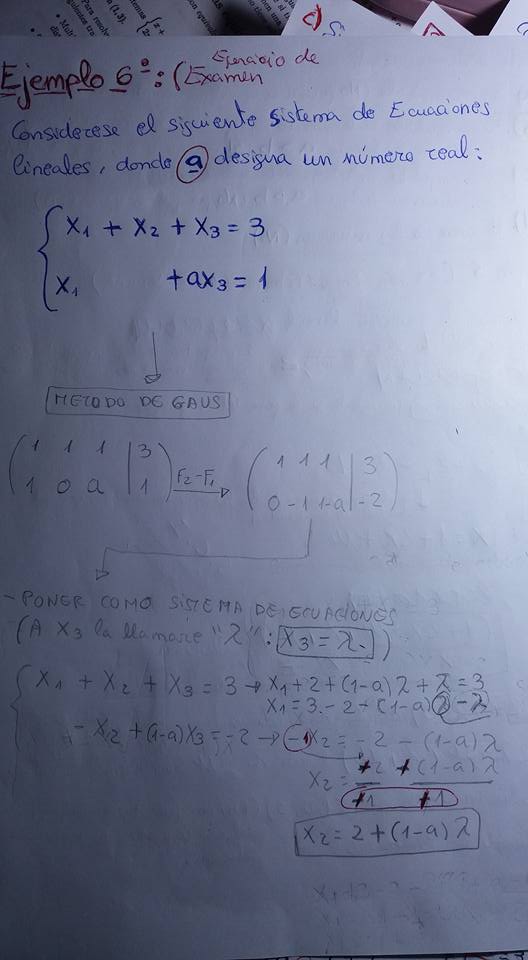 Ejemplo 6º: (Ejercicio de
Examen
Considerese el siguiente sistema de Ecuaciones
lineales, donde a designa un número real:
x₁ + x₂ + x₃ = 3
x₁ + ax₃ = 1
METODO DE GAUS
( 1 1 1 | 3 ) F₂-F₁ ( 1 1 1 | 3 )
( 1 0 a | 1 ) ( 0 -1 1-a | -2 )
- PONER COMO SISTEMA DE ECUACIONES
(A X₃ la llamare "λ": X₃ = λ.)
x₁ + x₂ + x₃ = 3 → x₁ + 2 + (1-a)λ + λ = 3
x₁ = 3 - 2 - (1-a)λ - λ
- x₂ + (1-a)x₃ = -2 → -1x₂ = -2 - (1-a)λ
x₂ = +2 + (1-a)λ
+1 +1
x₂ = 2 + (1-a)λ